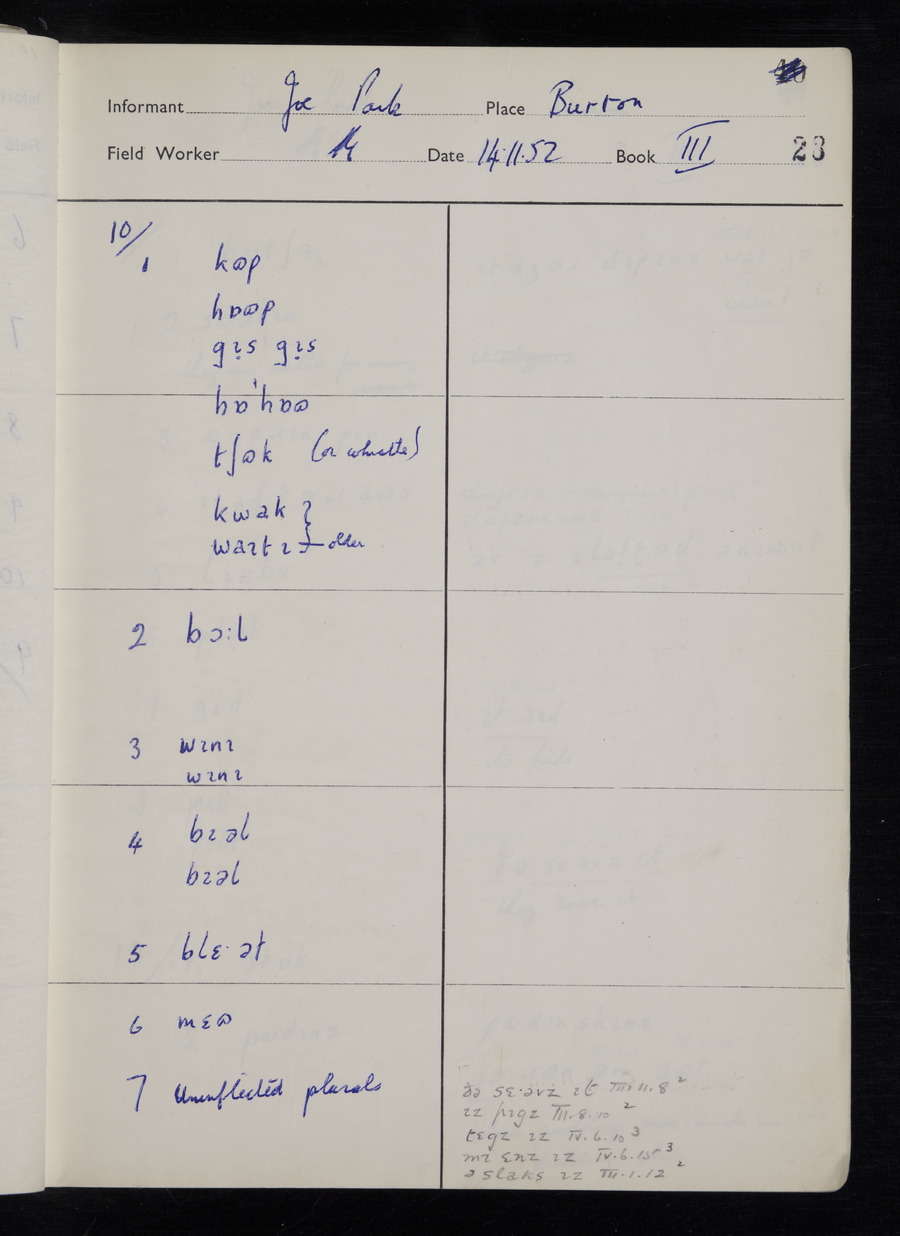 Informant Joe Park Place Burton
Field Worker Date 14.11.52 Book III 28
10/
1 kɷp
hɒɷp
gɪ̣s gɪ̣s
hɒˈhɒɷ
tʃɷk (or whistle)
kwak }
waɪtɪ } older
2 bɔ:l
3 wɪnɪ
wɪnɪ
4 bɪəl
bɪəl
5 blɛ·ət
6 mɛɷ
7 Uninflected plurals
ðə sɛ·əvz ɪt III.11.8²
ɪz pɪgz III.8.10²
tɛgz ɪz IV.6.10³
mɪ ɛnz ɪz IV.6.15³
ə slaks ɪz III.1.12²